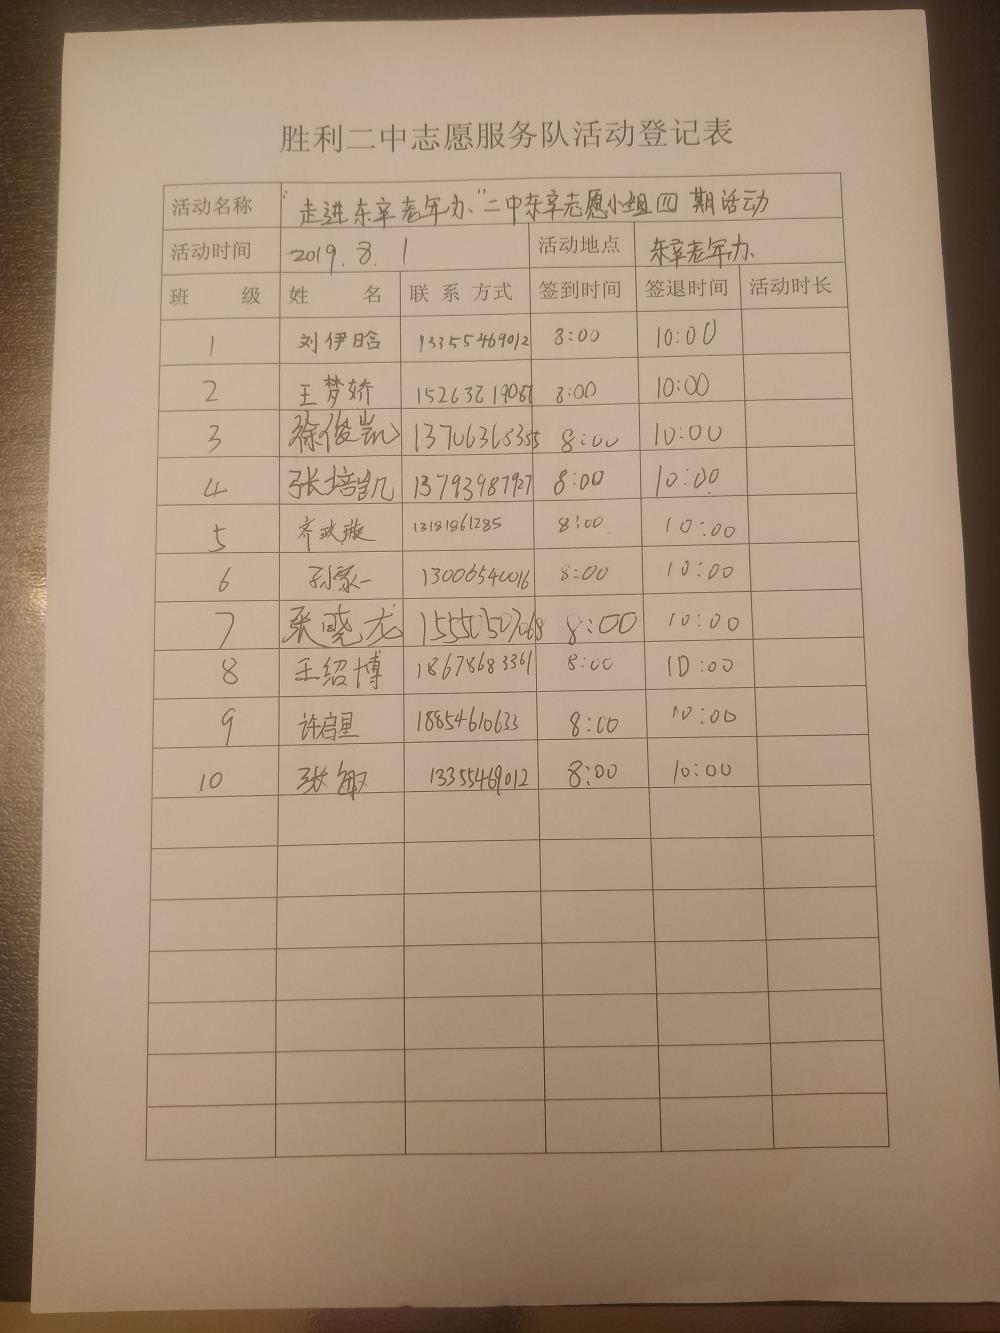 胜利二中志愿服务队活动登记表
活动名称 “走进东辛老年办”二中东辛志愿小组四期活动
活动时间 2019.8.1 活动地点 东辛老年办
班 级 姓 名 联系方式 签到时间 签退时间 活动时长
1 刘伊晗 13355469012 8:00 10:00
2 王梦娇 8:00 10:00
3 徐俊凯 13706368355 8:00 10:00
4 张培凯 13793987927 8:00 10:00
5 齐玖璇 13181861285 8:00 10:00
6 孙家一 13006540016 8:00 10:00
7 张晓龙 15550507068 8:00 10:00
8 王绍博 18678683361 8:00 10:00
9 许启星 18854610633 8:00 10:00
10 张敏 13355469012 8:00 10:00